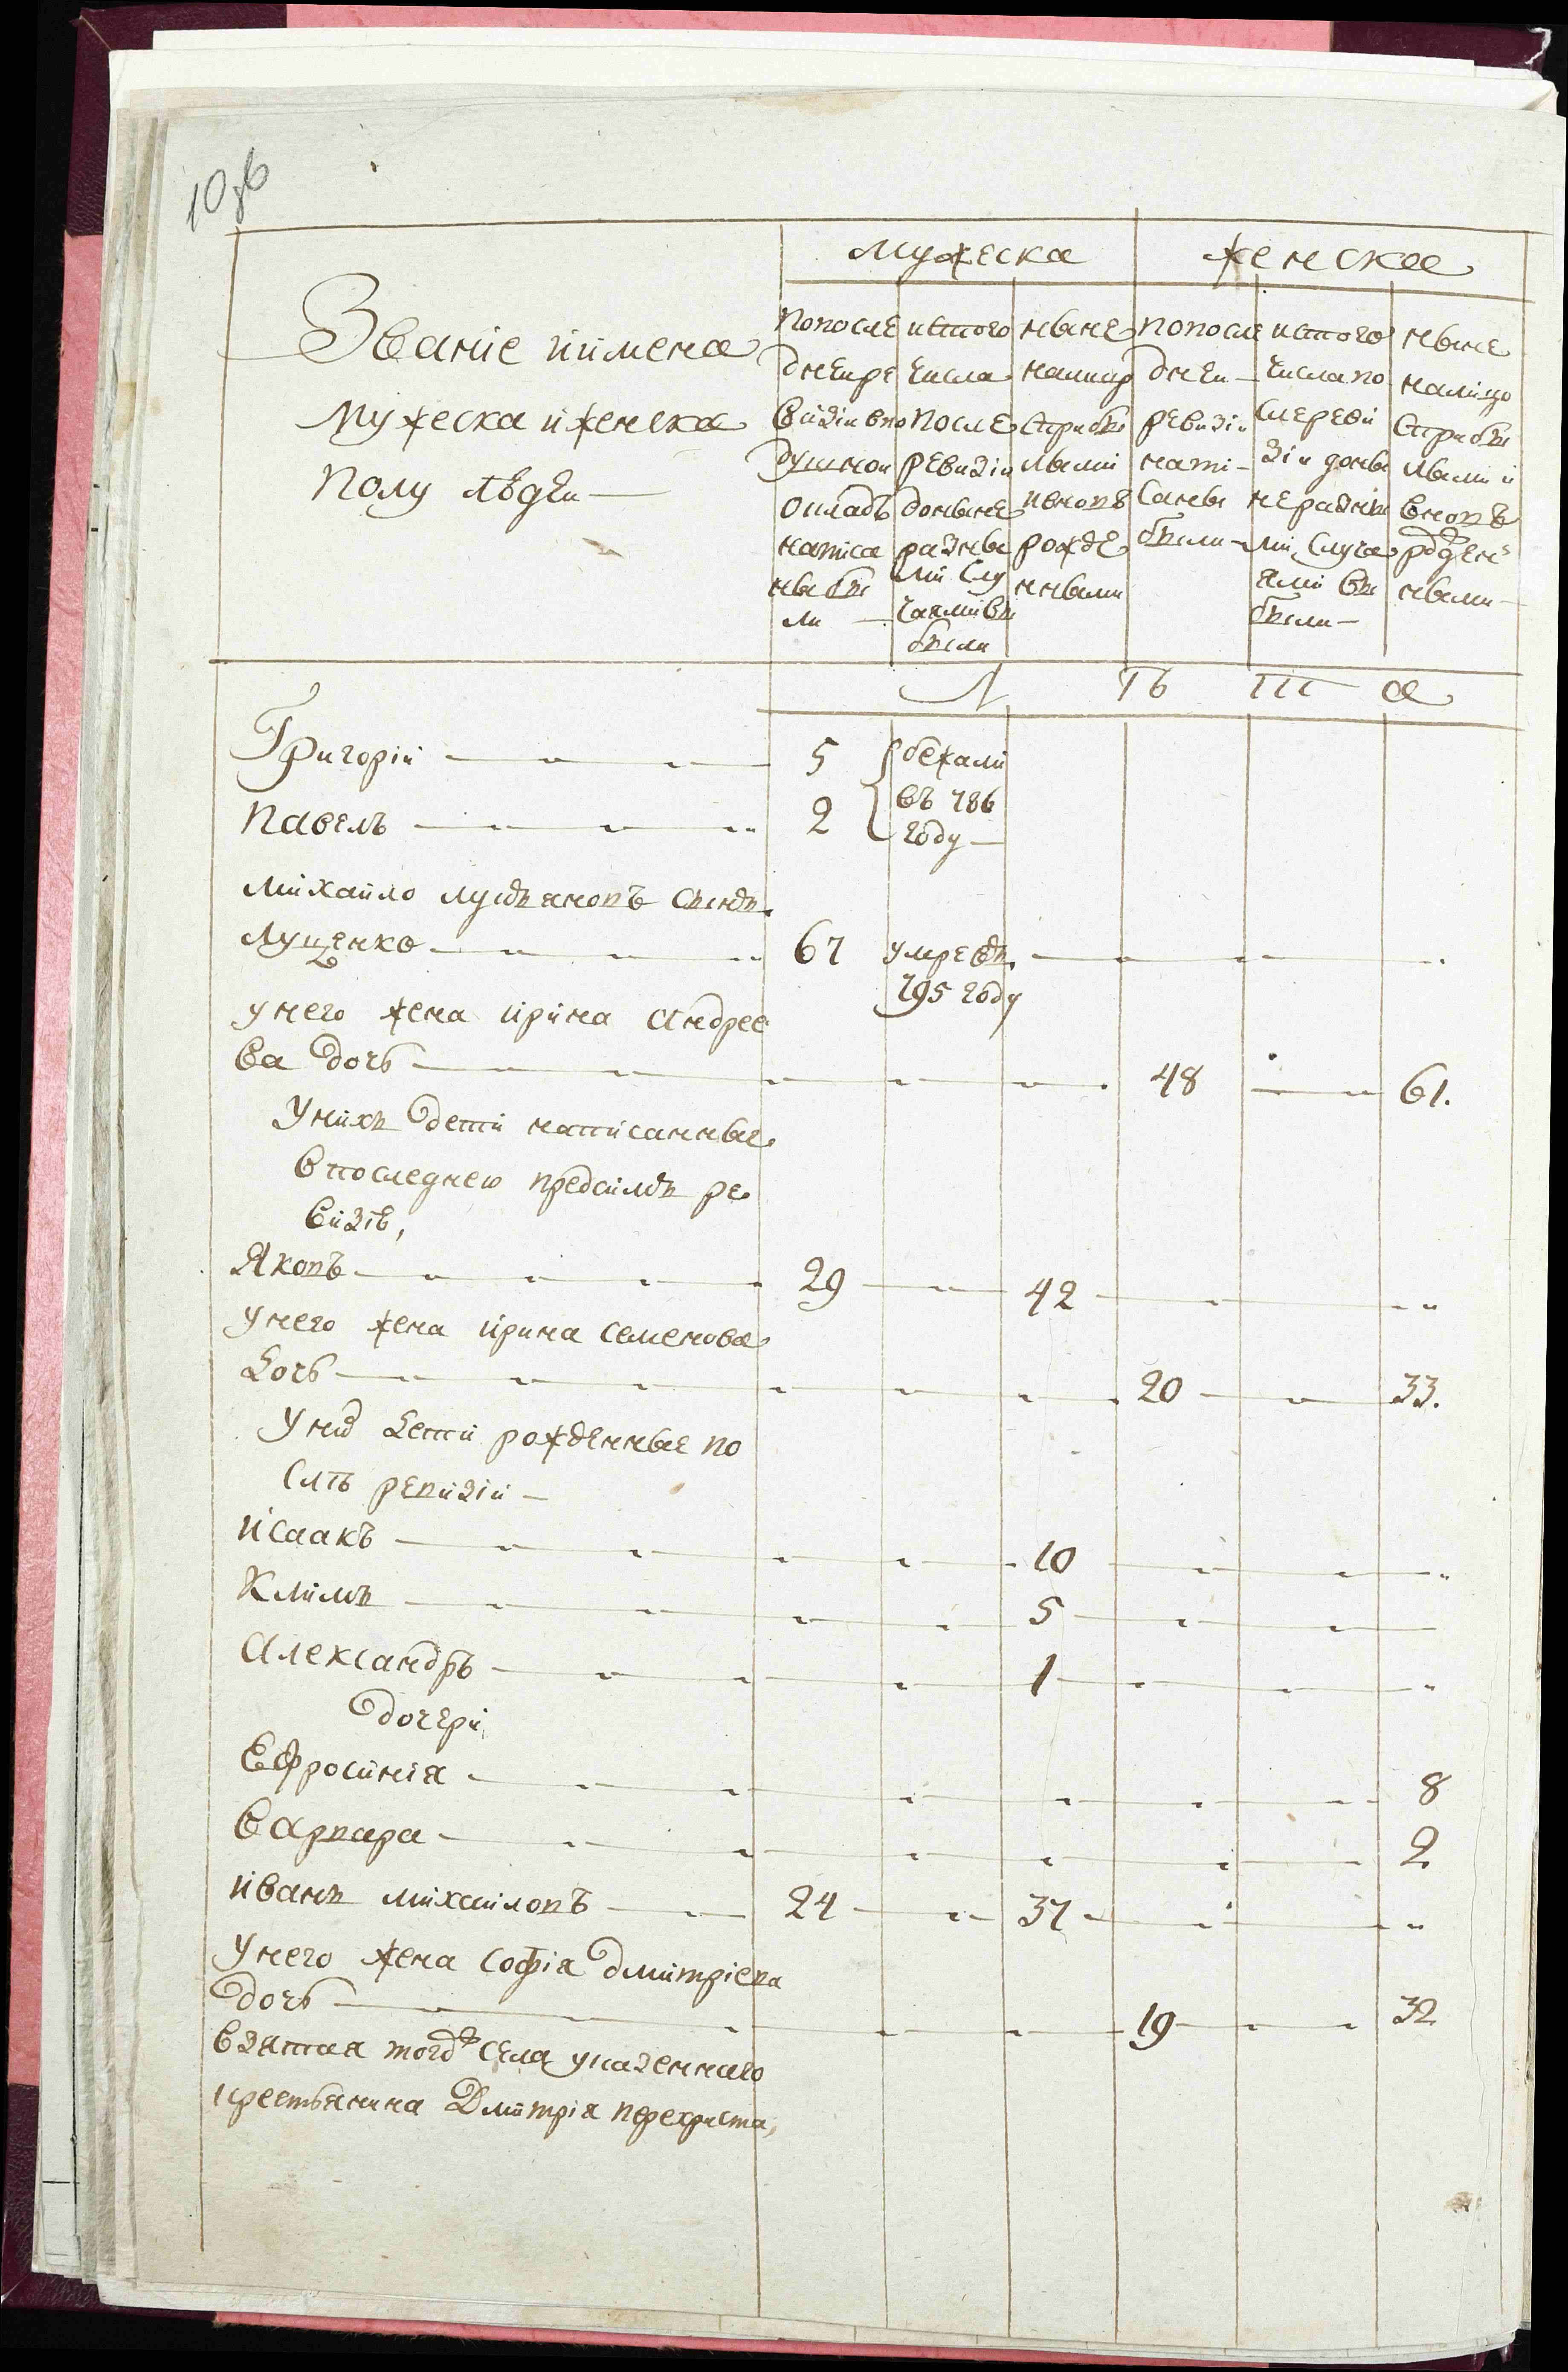 10об
Мужеска Женска
Званіе и имена
Мужеска и женска
Полу людеи
По после
днеи ре
визіи в по
душнои
окладъ
написа
ны бы
ли
ис того
числа
после
ревизіи
до ныне
разны
ми слу
чаями вы
были
ныне
налицо
с прибы
лыми
и вновь
рожде
нными
По после
днеи
ревизіи
напи
саны
были
ис того
числа по
сле реви
зіи до ны
не разны
ми случа
ями вы
были
ныне
налицо
с прибы
лыми и
вновь
рожден
ными
Л ѣ т а
Григорій 5 бежали
Павелъ 2 въ 786
году
Михайло Лукьяновъ сынъ
Лущенко 67 умре въ
795 году
у него жена Ирина Андрее
ва дочь 48 61.
У нихъ дети написанные
в последнею пред симъ ре
визію,
Яковъ 29 42
у него жена Ирина Семенова
дочь 20 33.
У них дети рожденные по
слѣ ревизіи
Исаакъ 10
Климъ 5
Александръ 1
дочери
Ефросинія 8
Варвара 2
Иванъ Михаиловъ 24 37
У него жена Софія Дмитріева
дочь 19 32
взятая того ж села казенного
крестьянина Дмитрія Перехриста,